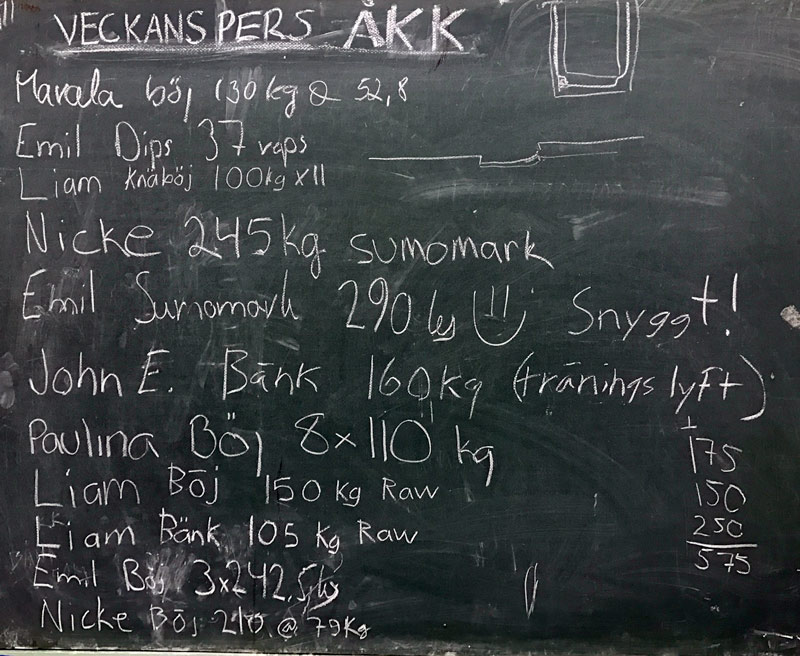 VECKANS PERS ÅKK
Marala böj 130 kg @ 52,8
Emil Dips 37 reps
Liam Knäböj 100kg x11
Nicke 245kg sumomark
Emil Sumomark 290 kg Snyggt!
John E. Bänk 160kg (träningslyft)
Paulina Böj 8x110 kg
Liam Böj 150 kg Raw
Liam Bänk 105 kg Raw
Emil Böj 3x242,5kg
Nicke Böj 210 @ 79kg
+
175
150
250
575